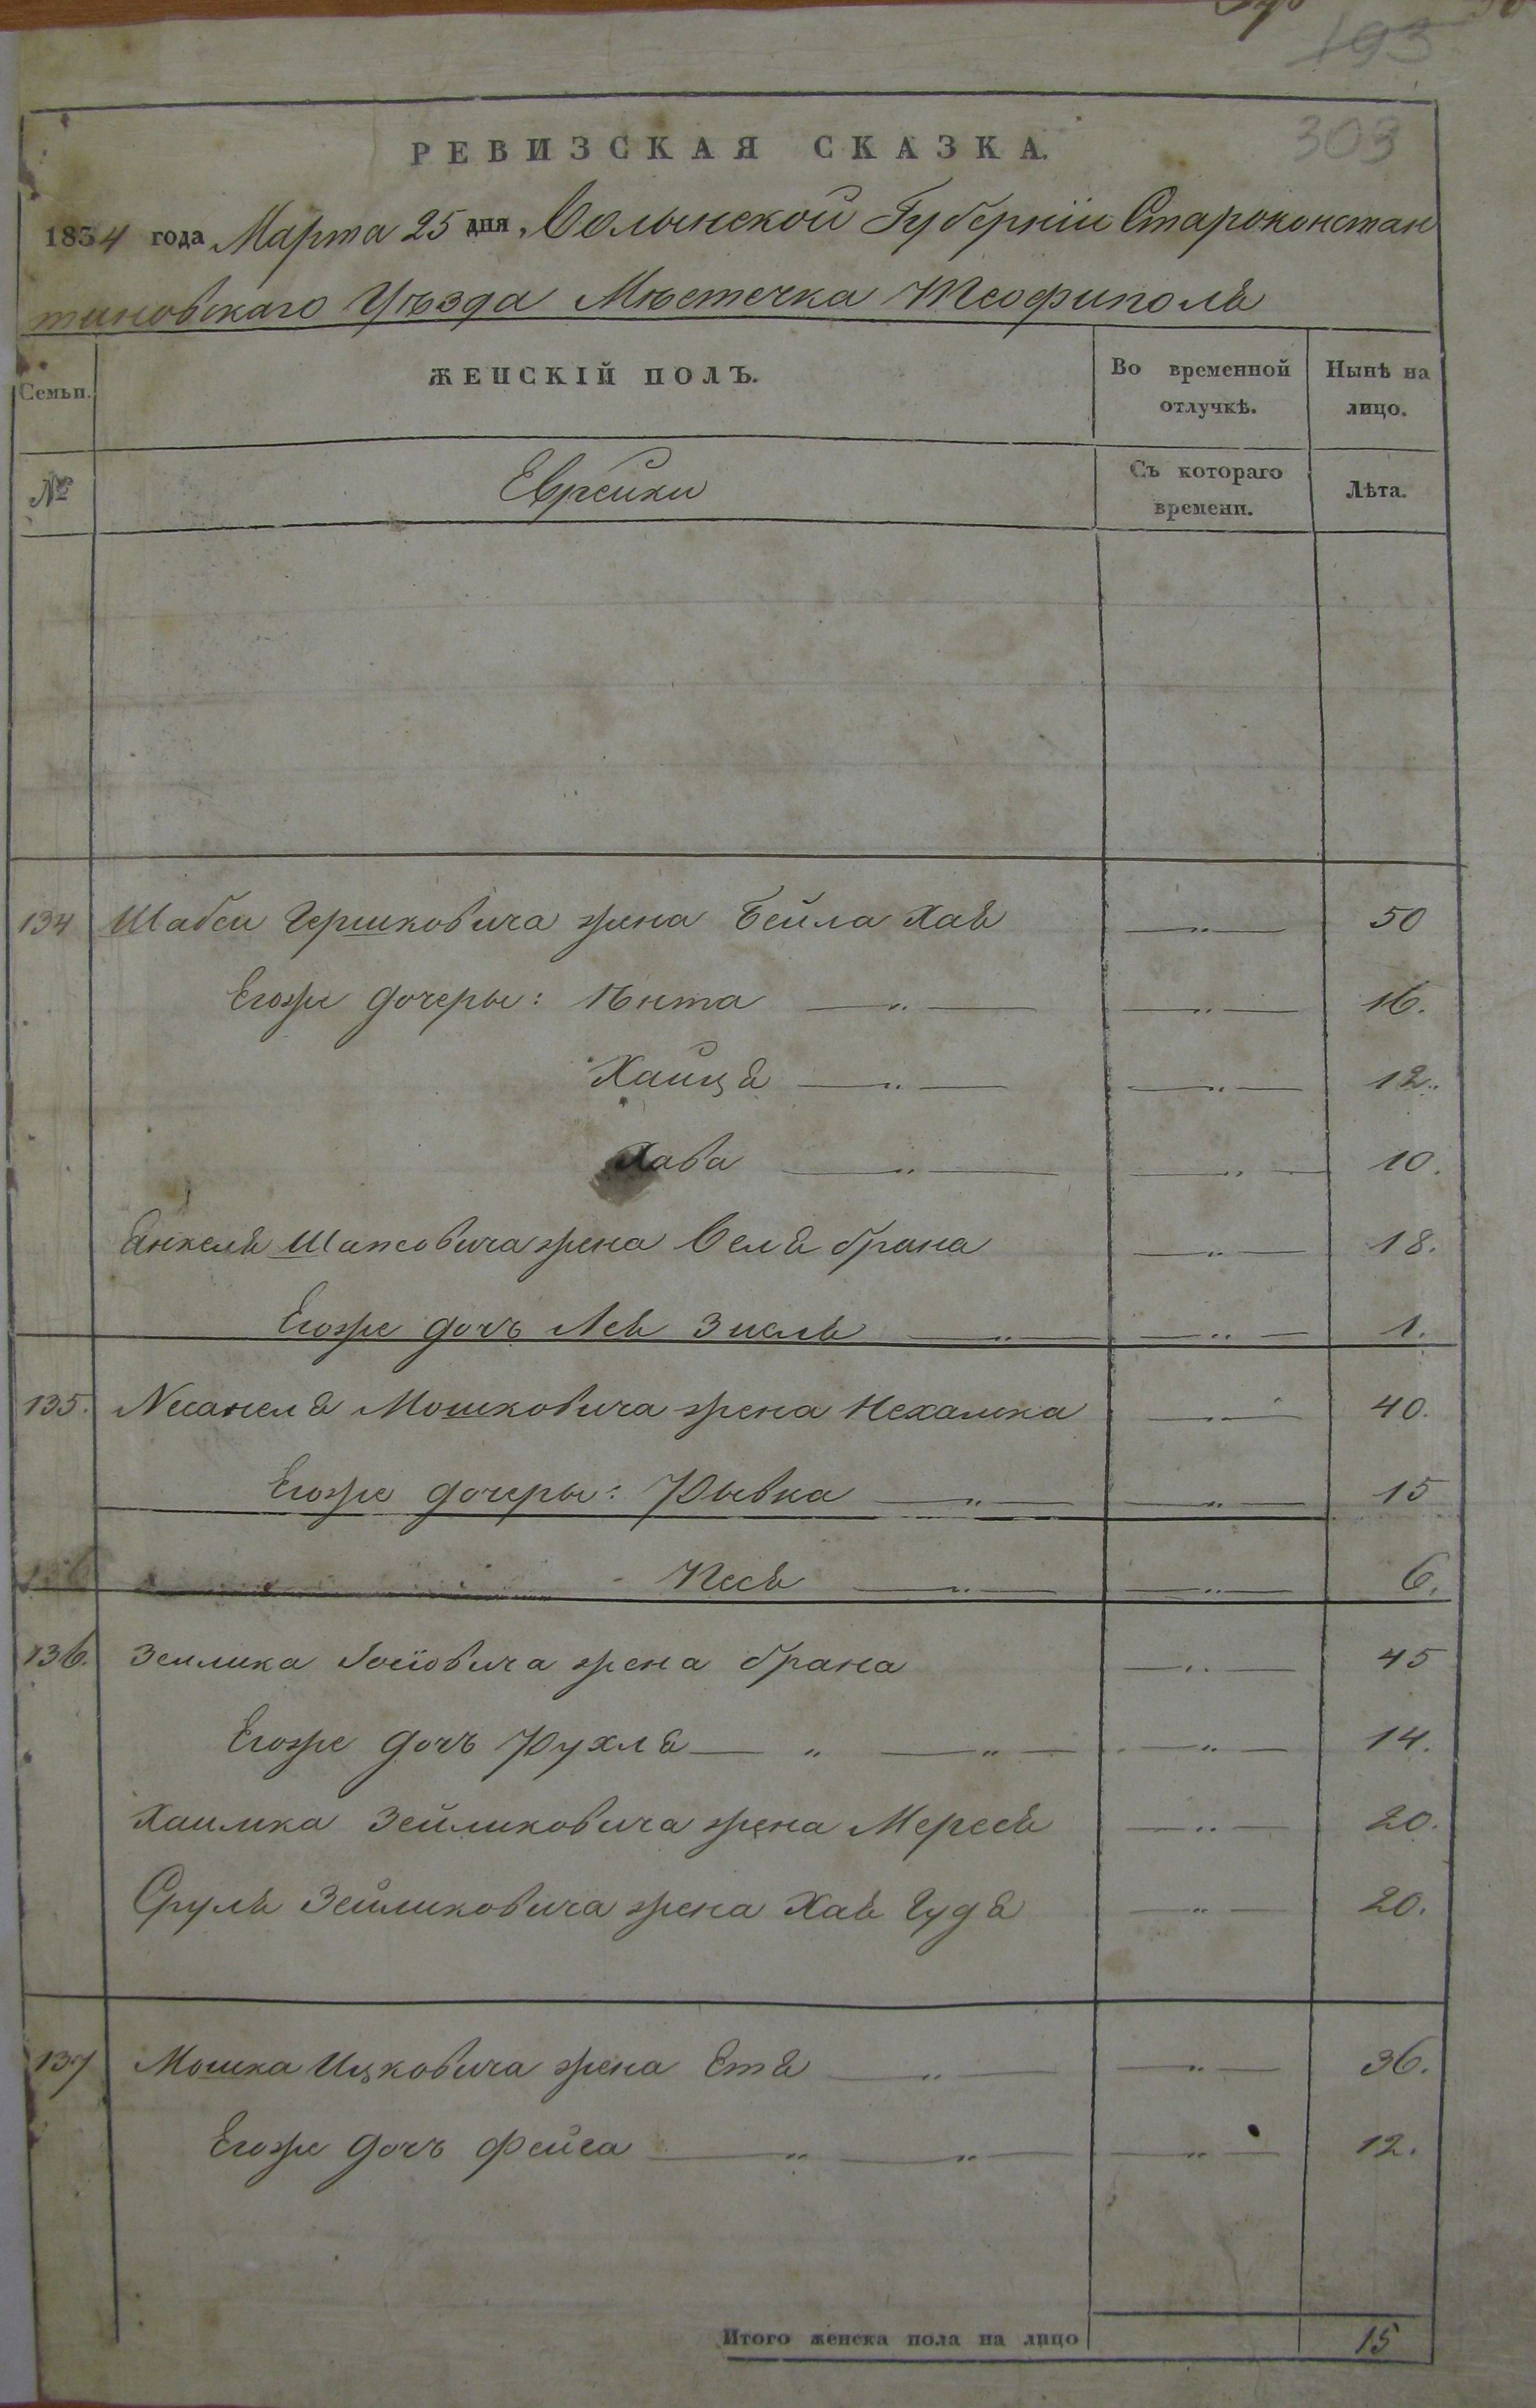 193
303
РЕВИЗСКАЯ СКАЗКА.
1834 года Марта 25 дня, Волынской Губерніи Староконстан
тиновскаго Уѣзда Мѣстечка Теофиполя
Семьи.
ЖЕНСКІЙ ПОЛЪ.
Во временной отлучкѣ.
Нынѣ на лицо.
№
Еврейки
Съ котораго времени.
Лѣта.
134 Шабси Гершковича жена Бейла Хая —„— 50
Егоже дочеры: Юнта —„— —„— 16.
Хайця —„— —„— 12.
Хава —„— —„— 10.
Янкеля Шапсовича жена Веля брана —„— 18.
Егоже дочъ Лея Зисля —„— —„— 1.
135. Несанеля Мошковича жена Нехамка —„— 40.
Егоже дочеры: Рывка —„— —„— 15
Песя —„— —„— 6.
136. Зеилика Іосіовича жена брана —„— 45
Егоже дочъ Рухля — „ —„— —„— 14.
Хаимка Зейликовича жена Мереся —„— 20.
Сруля Зейликовича жена Хая Гудя —„— 20.
137 Мошка Ицковича жена Етя —„— —„— 36.
Егоже дочъ Фейга —„— —„— —„— 12.
Итого женска пола на лицо 15